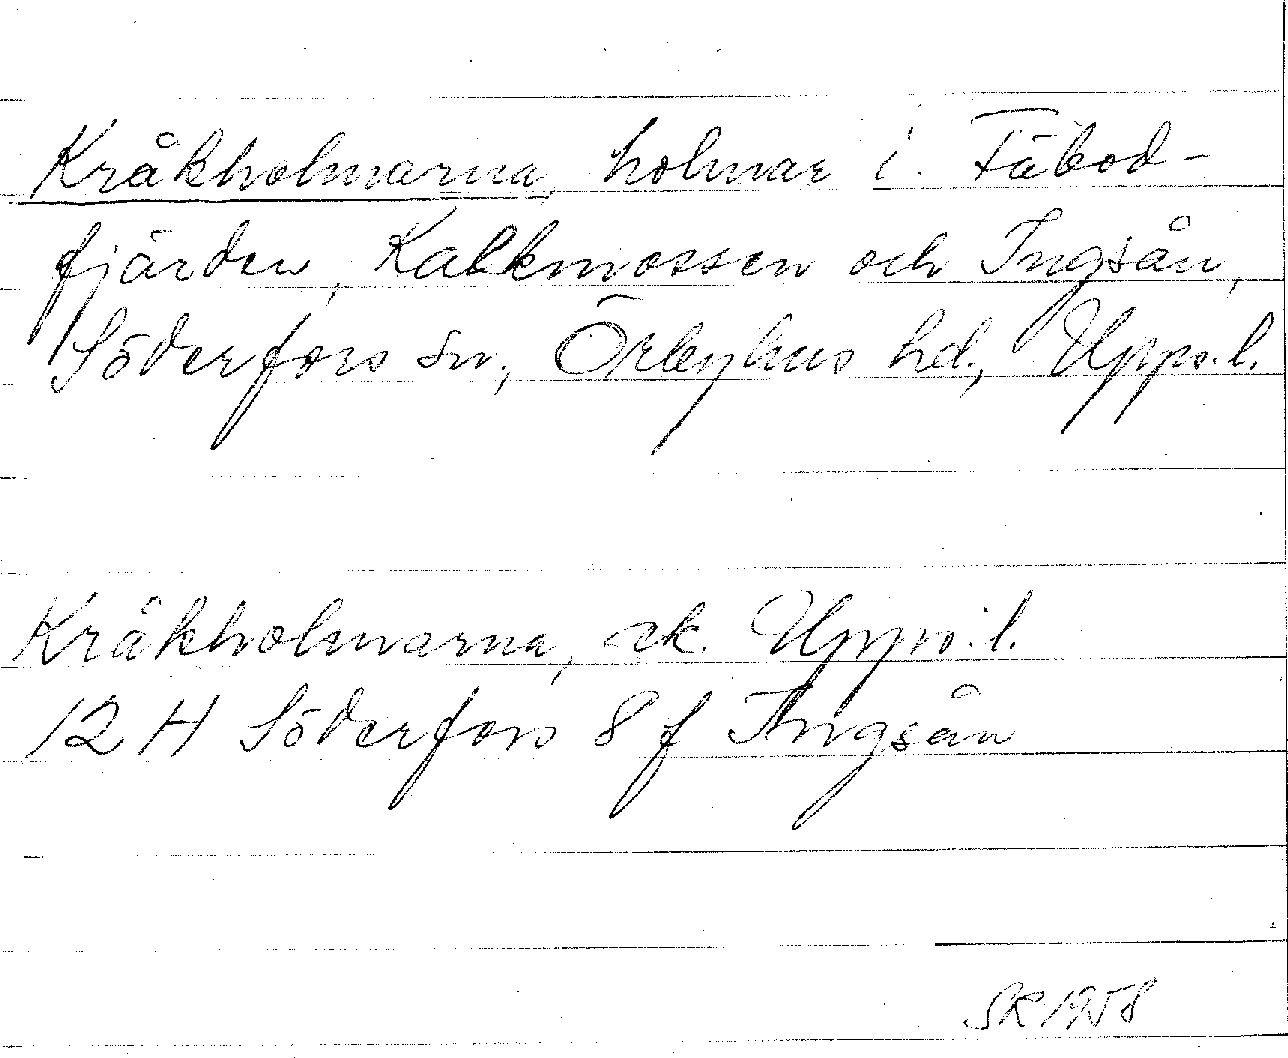 Kråkholmarna, holmar i Fäbod-
fjärden, Kalkmossen och Ingsån,
Söderfors sn, Örbyhus hd, Upps.l.
Kråkholmarna, ek. Upps.l.
12 H Söderfors 8 f Ingsån
SK 1958